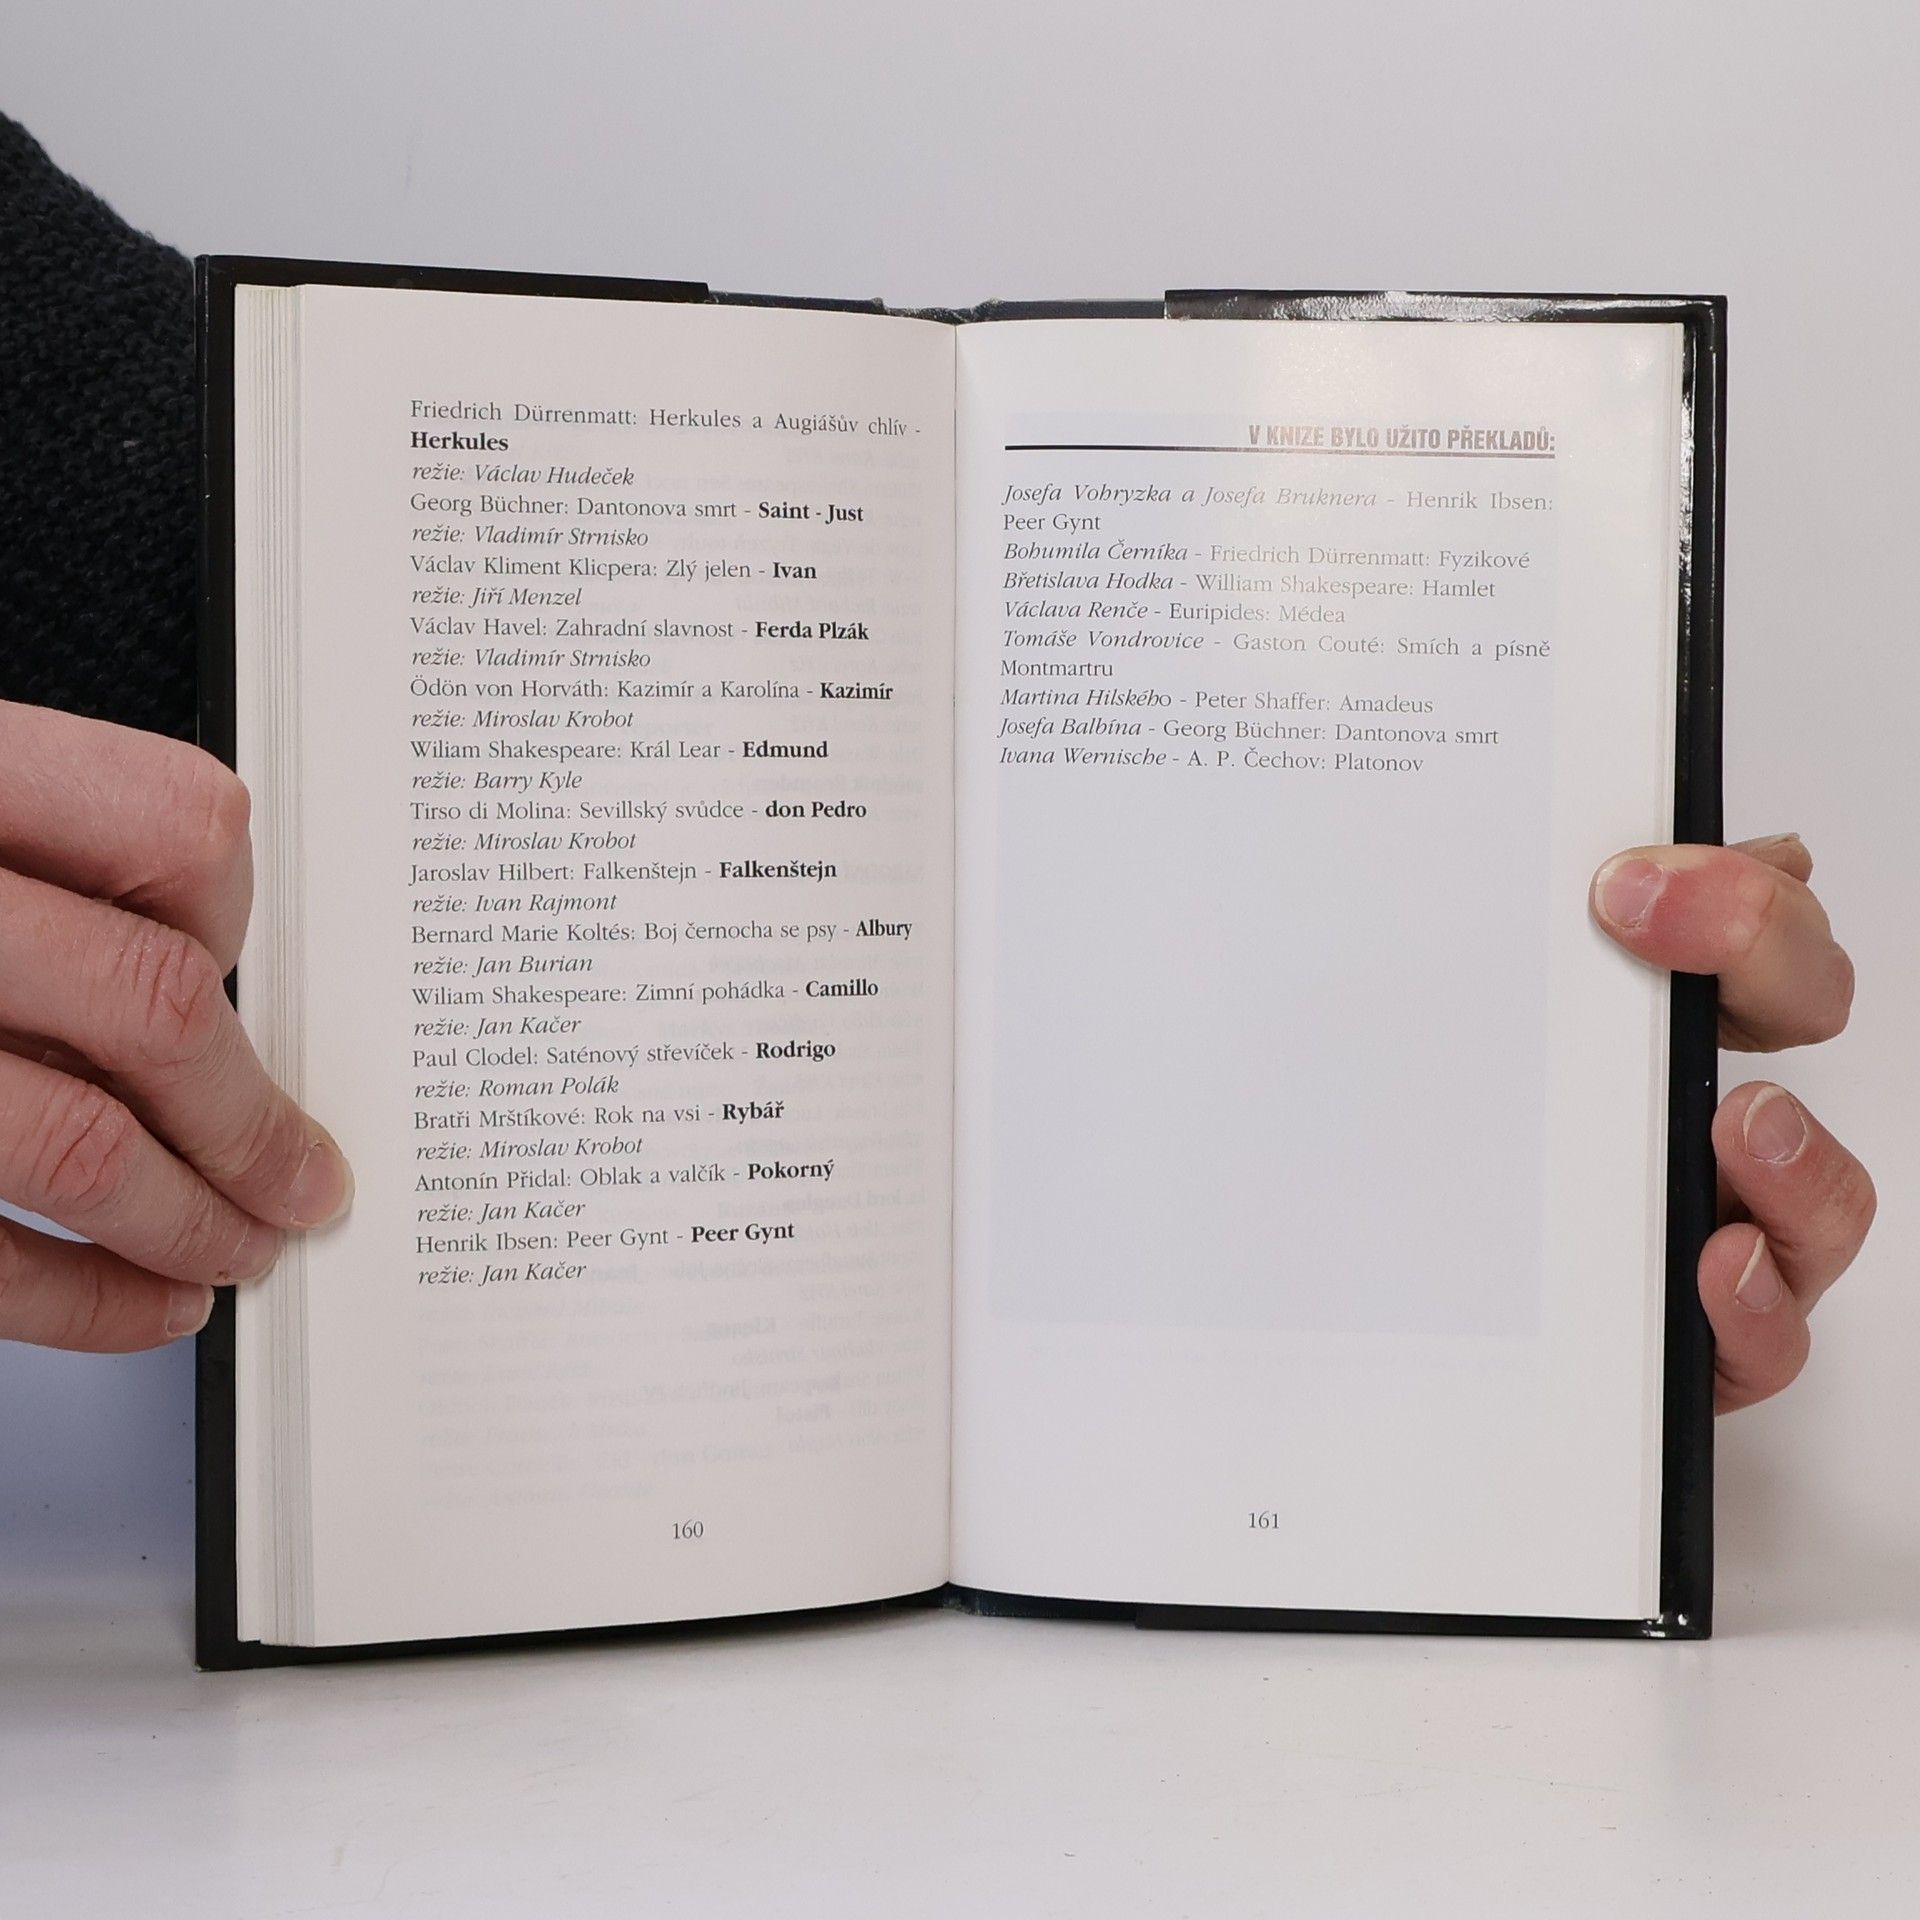 Friedrich Dürrenmatt: Herkules a Augiášův chlív -
Herkules
režie: Václav Hudeček
Georg Büchner: Dantonova smrt - Saint - Just
režie: Vladimír Strnisko
Václav Kliment Klicpera: Zlý jelen - Ivan
režie: Jiří Menzel
Václav Havel: Zahradní slavnost - Ferda Plzák
režie: Vladimír Strnisko
Ödön von Horváth: Kazimír a Karolína - Kazimír
režie: Miroslav Krobot
Wiliam Shakespeare: Král Lear - Edmund
režie: Barry Kyle
Tirso di Molina: Sevillský svůdce - don Pedro
režie: Miroslav Krobot
Jaroslav Hilbert: Falkenštejn - Falkenštejn
režie: Ivan Rajmont
Bernard Marie Koltés: Boj černocha se psy - Albury
režie: Jan Burian
Wiliam Shakespeare: Zimní pohádka - Camillo
režie: Jan Kačer
Paul Clodel: Saténový střevíček - Rodrigo
režie: Roman Polák
Bratři Mrštíkové: Rok na vsi - Rybář
režie: Miroslav Krobot
Antonín Přidal: Oblak a valčík - Pokorný
režie: Jan Kačer
Henrik Ibsen: Peer Gynt - Peer Gynt
režie: Jan Kačer
160
V KNIZE BYLO UŽITO PŘEKLADŮ:
Josefa Vohryzka a Josefa Bruknera - Henrik Ibsen:
Peer Gynt
Bohumila Černíka - Friedrich Dürrenmatt: Fyzikové
Břetislava Hodka - William Shakespeare: Hamlet
Václava Renče - Euripides: Médea
Tomáše Vondrovice - Gaston Couté: Smích a písně
Montmartru
Martina Hilského - Peter Shaffer: Amadeus
Josefa Balbína - Georg Büchner: Dantonova smrt
Ivana Wernische - A. P. Čechov: Platonov
161